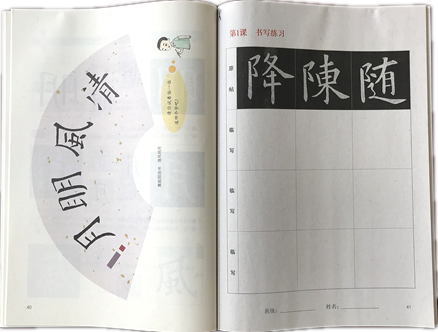 清風明月
40
第1课 书写练习
原帖
降陳随
临写
临写
临写
班级:
姓名: